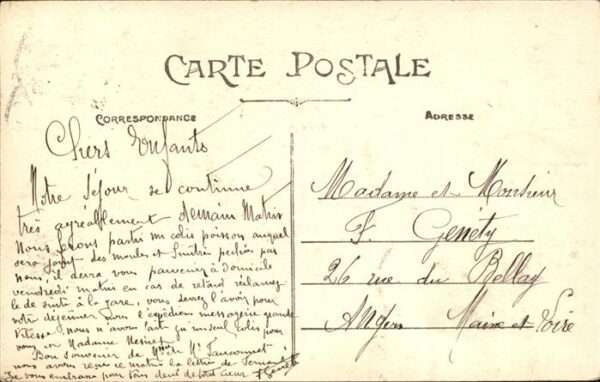 CARTE POSTALE
CORRESPONDANCE
ADRESSE
Chers Enfants
Notre Séjour se continue
très agréablement demain Matin
Nous ferons partir un colis poisson auquel
sera joint des moules et pêchés par
nous, il devra vous parvenir à domicile
vendredi matin en cas de retard réclamez
le de suite à la gare, vous devez l'avoir pour
votre déjeuner l'expédions messagerie grande
Vitesse, nous n'avons fait qu'un seul colis pour
vous et Madame
Bon souvenir de Mme et Mr
nous avons reçu ce matin la lettre de Fernand
Je vous embrasse pour tous deux de tout cœur
Madame et Monsieur
F. Genéty
26 rue du Bellay
Angers Maine et Loire